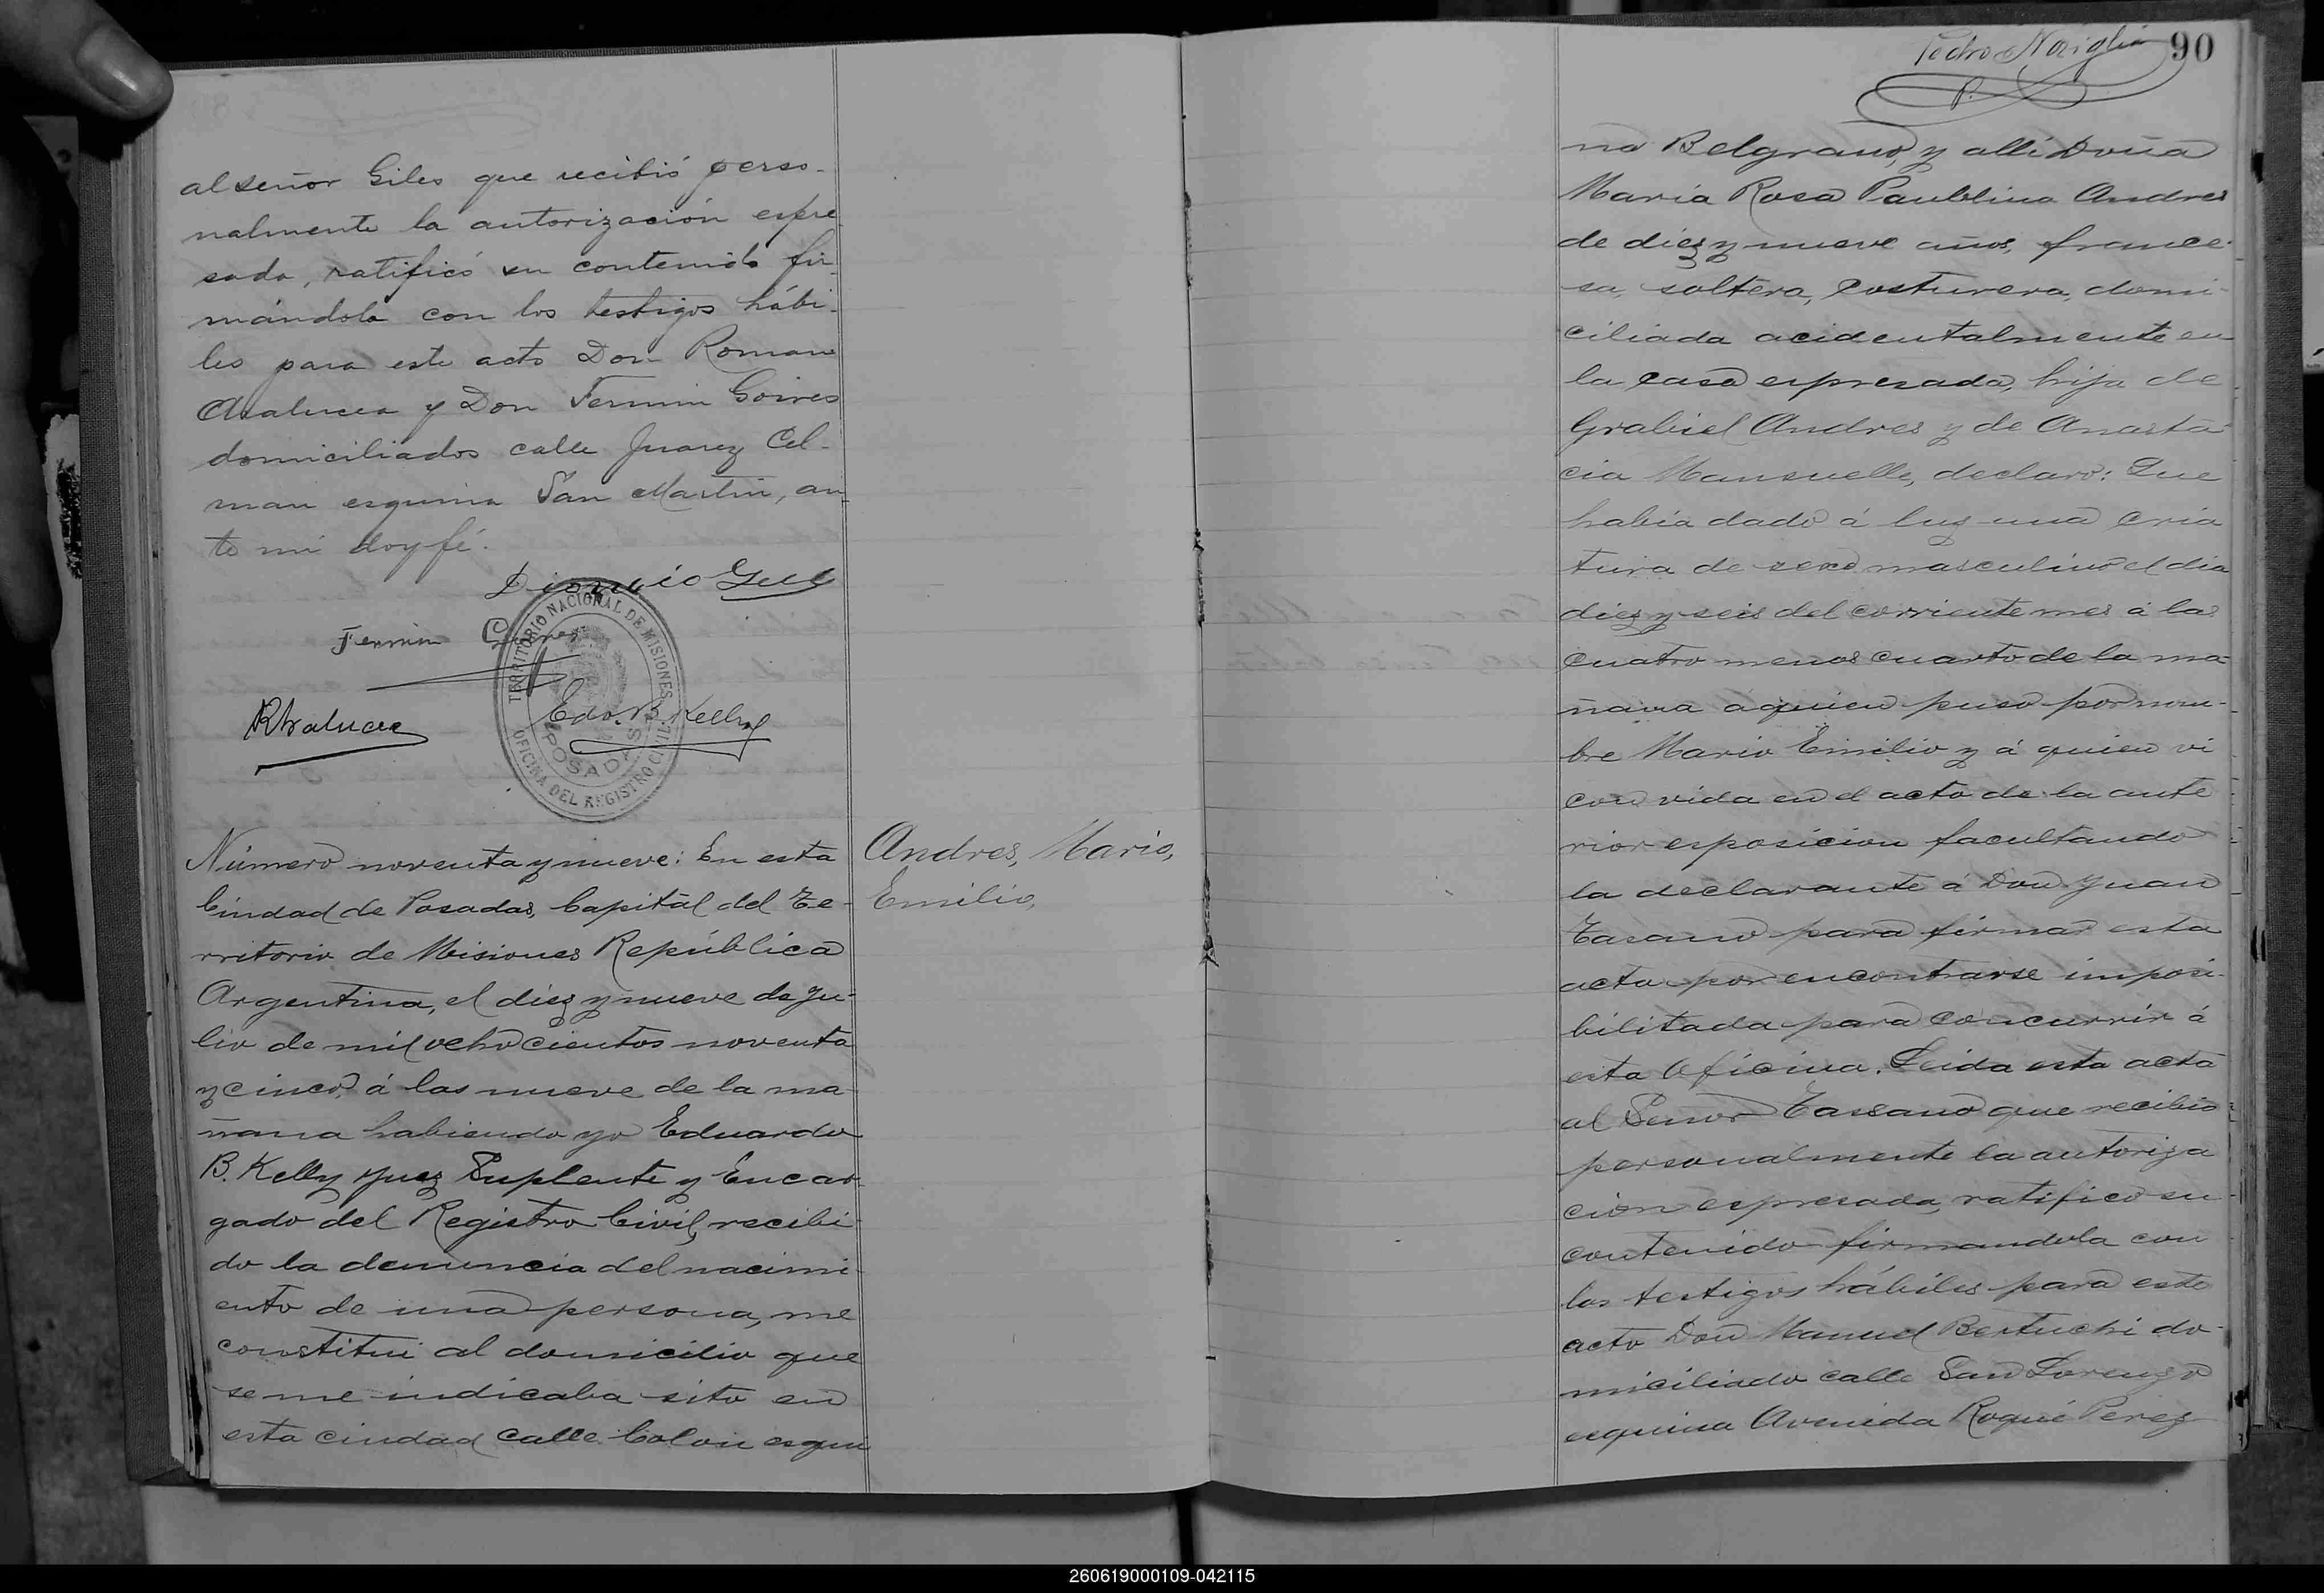 al señor Giles que recibió perso-
nalmente la autorización espre
sada, ratificó su contenido fir-
mándola con los testigos hábi-
les para este acto Don Roman
y Don Fermin Goires
domiciliados calle Juarez Cel-
man esquina San Martin, an-
te mi doy fé.
Dionicio Giles
Fermin
Edo. B. Kelly
TERRITORIO NACIONAL DE MISIONES
POSADAS
OFICINA DEL REGISTRO CIVIL
Número noventa y nueve: En esta
Ciudad de Posadas, Capital del Te-
rritorio de Misiones República
Argentina, el diez y nueve de Ju-
lio de mil ochocientos noventa
y cinco, á las nueve de la ma-
ñana habiendo yo Eduardo
B. Kelly Juez Suplente y Encar-
gado del Registro Civil, recibi-
do la denuncia del nacimi-
ento de una persona, me
constitui al domicilio que
se me indicaba sito en
esta ciudad calle Colon esqui
Andres, Mario,
Emilio,
Pedro Noriglia
90
na Belgrano, y alli Doña
Maria Rosa Paublina Andres
de diez y nueve años, france-
sa, soltera, costurera, domi-
ciliada acidentalmente en
la casa espresada, hija de
Grabiel Andres y de Anasta-
cia Mansuelle, declaró: Que
habia dado á luz una cria
tura de sexo masculino el dia
diez y seis del corriente mes á las
cuatro menos cuarto de la ma-
ñana á quien puso por nom-
bre Mario Emilio y á quien vi
con vida en el acto de la ante
rior esposicion facultando
la declarante á Don Juan
Tasano para firmar esta
acta por encontrarse imposi-
bilitada para concurrir á
esta Oficina. Leida esta acta
al Señor Tassano que recibio
personalmente la autoriza
cion espresada, ratificó su
contenido firmandola con
los testigos hábiles para este
acto Don Manuel Bertuchi do-
miciliado calle San Lorenzo
esquina Avenida Roque Perez
260619000109-042115